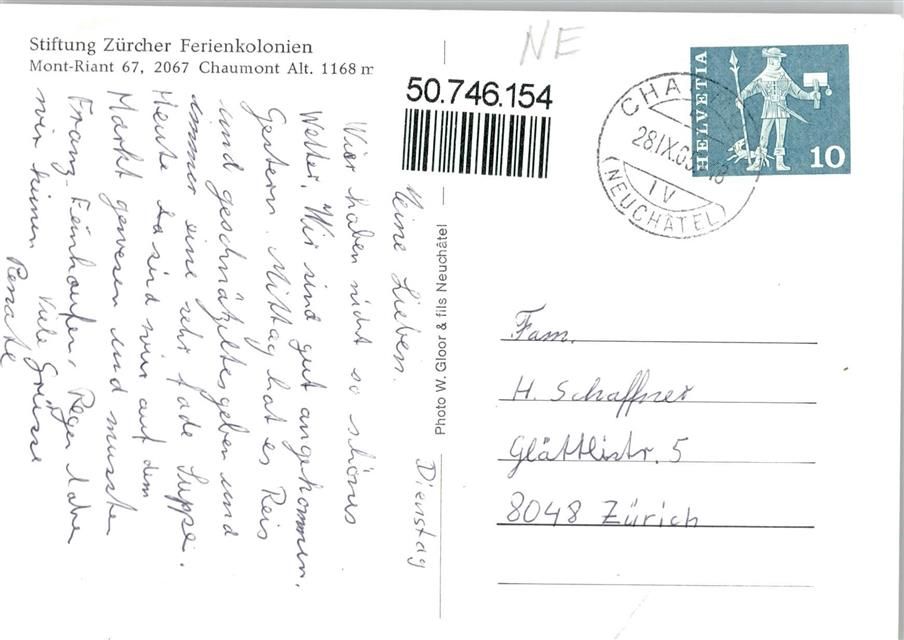 Stiftung Zürcher Ferienkolonien
Mont-Riant 67, 2067 Chaumont Alt. 1168 m
NE
50.746.154
HELVETIA
10
CHA
28.IX.6
18
IV
(NEUCHÂTEL)
Photo W. Gloor & fils Neuchâtel
Dienstag
Meine Lieben.
Wir haben nicht so schönes
Wetter. Wir sind gut angekommen.
Gestern Mittag hat es Reis
und geschnätzltes geben und
immer eine sehr fade Suppe.
Heute da sind wir auf dem
Markt gewesen und mussten
Franz. Regen haben
wir keinen Viele Grüsse
Renate
Fam.
H. Schaffner
Glättlistr. 5
8048 Zürich